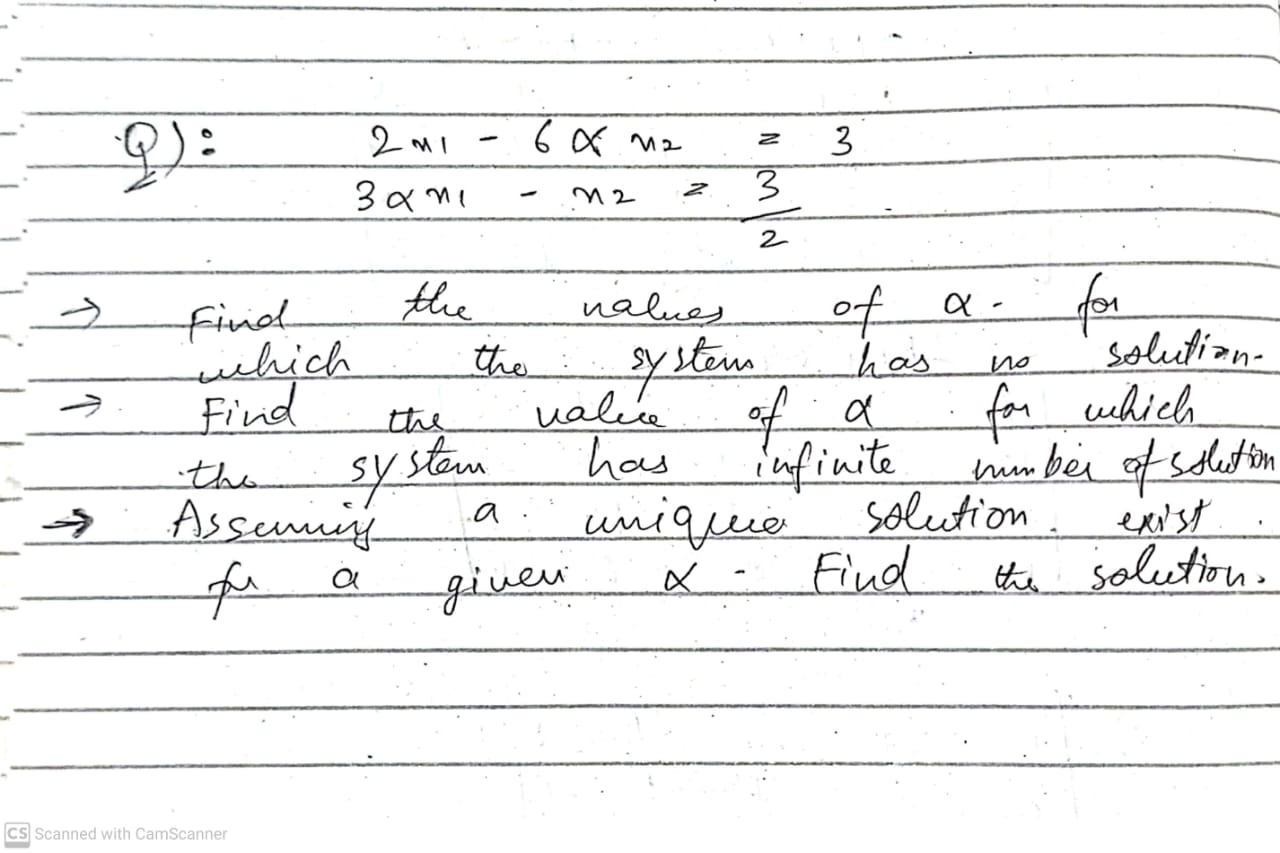 Q): 2x1 - 6αx2 = 3
3αx1 - x2 = 3/2
→ Find the values of α. for
which the system has no solution.
→ Find the value of α for which
the system has infinite number of solution
→ Assuming a unique solution exist
for a given α. Find the solution.
CS Scanned with CamScanner